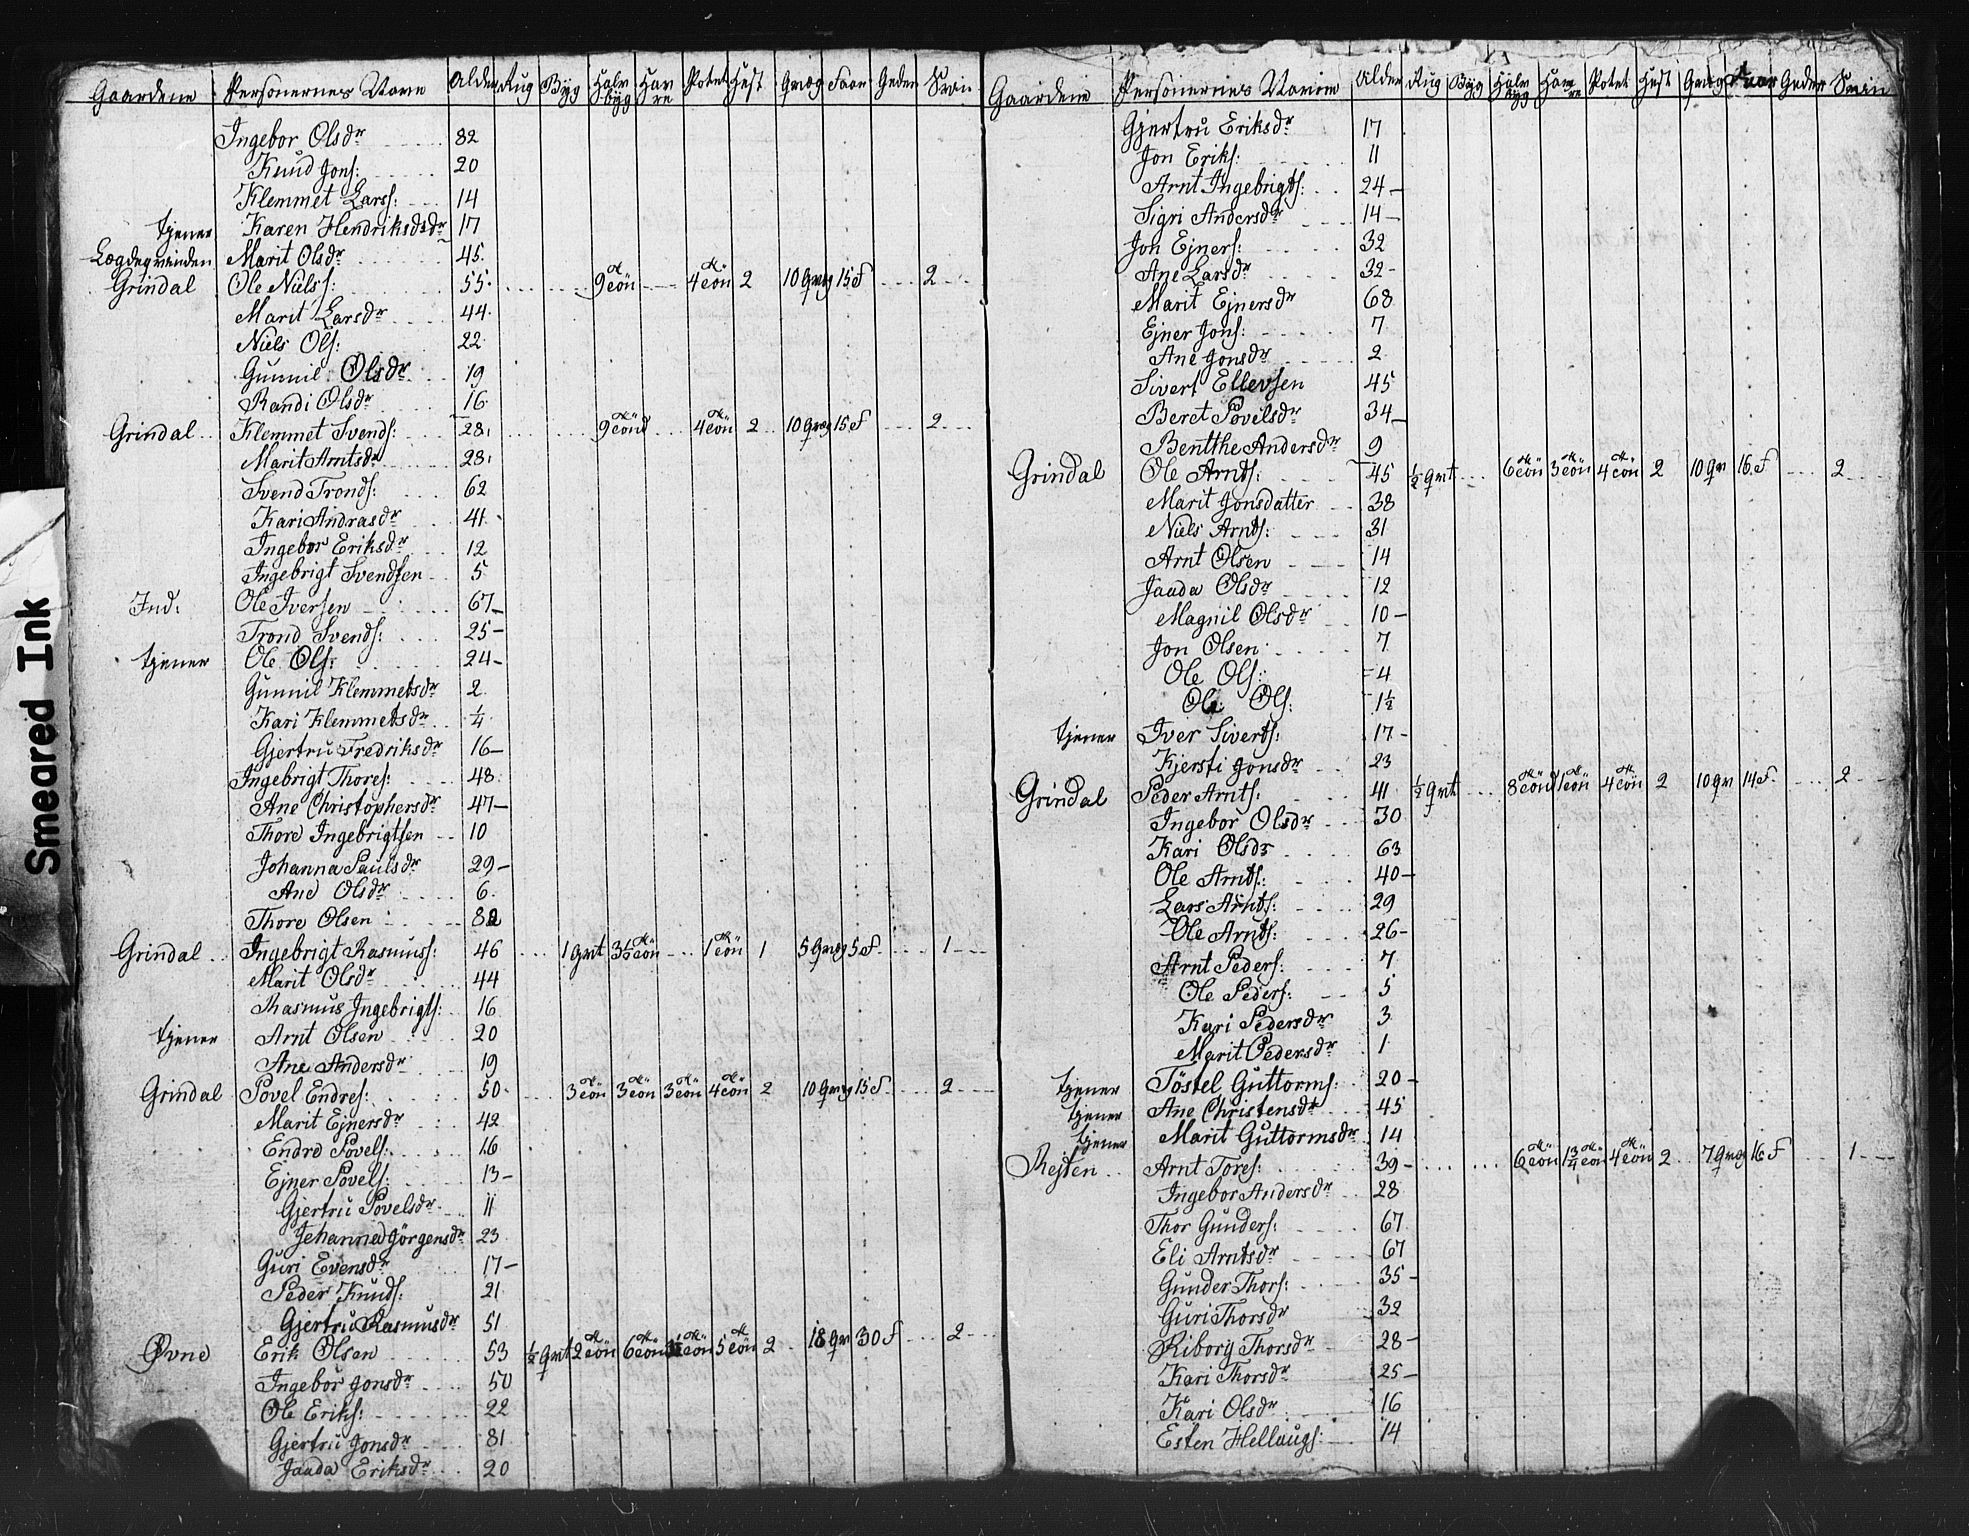 Gaardene Personernes Navne Alder Rug Byg Halv byg Hav re Potet Hest Qvæg Faar Geder Svin
Ingebor Olsdr 82
Knud Jons: 20
Klemmet Larss: 14
tjener Karen Hendriksdr 17
Lægdeqvinden Marit Olsdr 45
Grindal Ole Niels: 55 9 Tön 4 Tön 2 10 Qvæg 15 F 2
Marit Larsdr 44
Niels Ols: 22
Gunnil Olsdr 19
Randi Olsdr 16
Grindal Klemmet Svends: 28 9 Tönd 4 Tön 2 10 Qvæg 15 F 2
Marit Arntsdr 28
Svend Tronds: 62
Kari Andrasdr 41
Ingebor Eriksdr 12
Ingebrigt Svendsen 5
Ind: Ole Iversen 67
Trond Svends: 25
tjener Ole Ols: 24
Gunnil Klemmetsdr 2
Kari Klemmetsdr ¼
Gjertru Fredriksdr 16
Ingebrigt Thores: 48
Ane Christophersdr 47
Thore Ingebrigtsen 10
Johanna Paulsdr 29
Ane Olsdr 6
Thore Olsen 82
Grindal Ingebrigt Rasmuss: 46 1 Qvrt 3½ Tön 1 Tön 1 5 Qvæg 5 F 1
Marit Olsdr 44
Rasmus Ingebrigts: 16
tjener Arnt Olsen 20
Ane Andersdr 19
Grindal Povel Endres: 50 3 Tön 3 Tön 3 Tön 4 Tön 2 10 Qvæg 15 F 2
Marit Ejnersdr 42
Endre Povels: 16
Ejner Povels: 13
Gjertru Povelsdr 11
Jehanna Jörgensdr 23
Guri Evensdr 17
Peder Knuds: 21
Gjertru Rasmusdr 51
Øvne Erik Olsen 53 ½ Qvrt 2 Tön 6 Tön Tön 5 Tön 2 18 Qv 30 F 2
Ingebor Jonsdr 50
Ole Eriks: 22
Gjertru Jonsdr 81
Jaada Eriksdr 20
Gaardene Personernes Navne Alder Rug Byg Halv byg Hav re Potet Hest Qvæg Faar Geder Svin
Gjertru Eriksdr 17
Jon Eriks: 11
Arnt Ingebrigts: 24
Sigri Andersdr 14
Jon Ejners: 32
Ane Larsdr 32
Marit Ejnersdr 68
Ejner Jons: 7
Ane Jonsdr 2
Sivert Ellevsen 45
Beret Povelsdr 34
Bentthe Andersdr 9
Grindal Ole Arnts: 45 ½ Qvrt 6 Tön 3 Tön 4 Tön 2 10 Qv 16 F 2
Marit Jonsdatter 38
Niels Arnts: 31
Arnt Olsen 14
Jaada Olsdr 12
Magnil Olsdr 10
Jon Olsen 7
Ole Ols: 4
Ole Ols: 1½
tjener Iver Siverts: 17
Kjersti Jonsdr 23
Grindal Peder Arnts: 41 ½ Qvrt 8 Tönd 1 Tön 4 Tön 2 10 Qv 14 F 2
Ingebor Olsdr 30
Kari Olsdr 63
Ole Arnts: 40
Lars Arnts: 29
Ole Arnts: 26
Arnt Peders: 7
Ole Peders: 5
Kari Pedersdr 3
Marit Pedersdr 1
tjener Töstel Guttorms: 20
tjener Ane Christensdr 45
tjener Marit Guttormsdr 14
Rejten Arnt Tores: 39 6 Tön 1¾ Tön 4 Tön 2 7 Qvæg 16 F 1
Ingebor Andersdr 28
Thor Gunders: 67
Eli Arntsdr 67
Gunder Thors: 35
Guri Thorsdr 32
Riborg Thorsdr 28
Kari Thorsdr 25
Kari Olsdr 16
Esten Hellaugs: 14
Smeared Ink